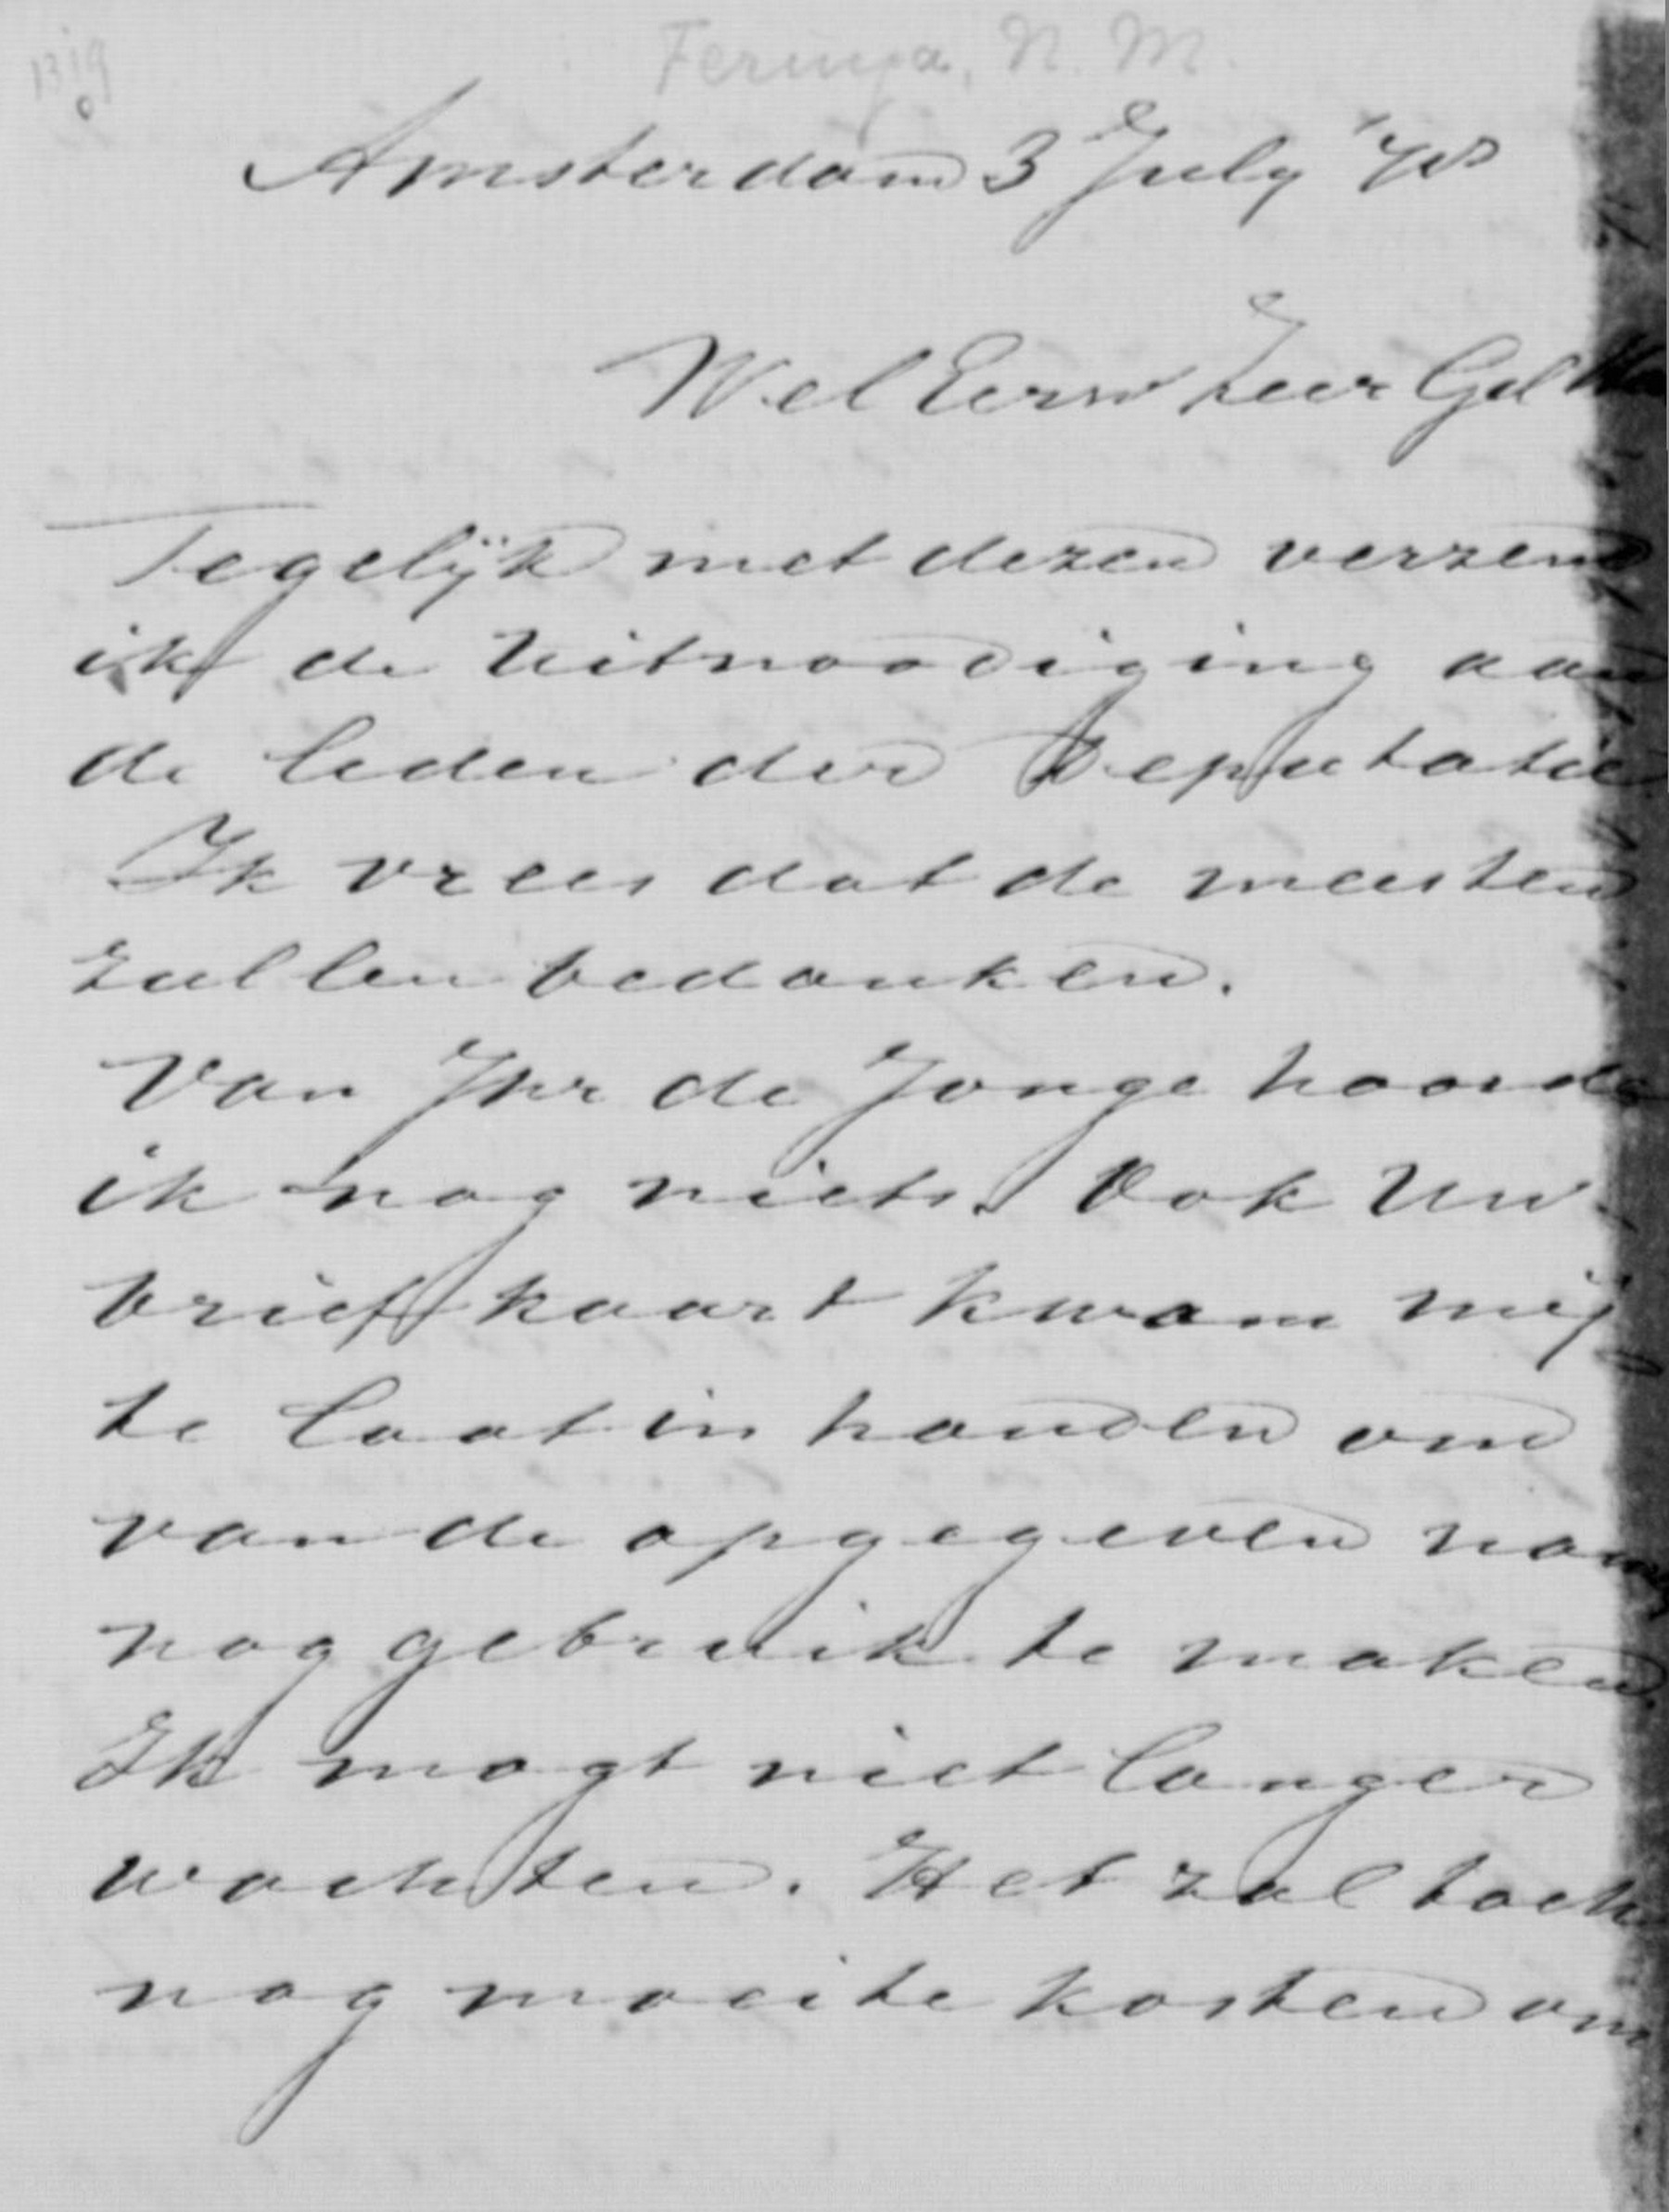 Feringa, N. M.
Amsterdam 3 July '78
Wel Eerw Zeer Gel
Tegelijk met dezen verzend
ik de Uitnoodiging aan
de leden der Deputatie
Ik vrees dat de meesten
zullen bedanken.
Van Jhr de Jonge hoorde
ik nog niets. Ook Uw
briefkaart kwam mij
te laat in handen om
van de opgegeven
nog gebruik te maken.
Ik mogt niet langer
wachten. Het zal toch
nog moeite kosten om